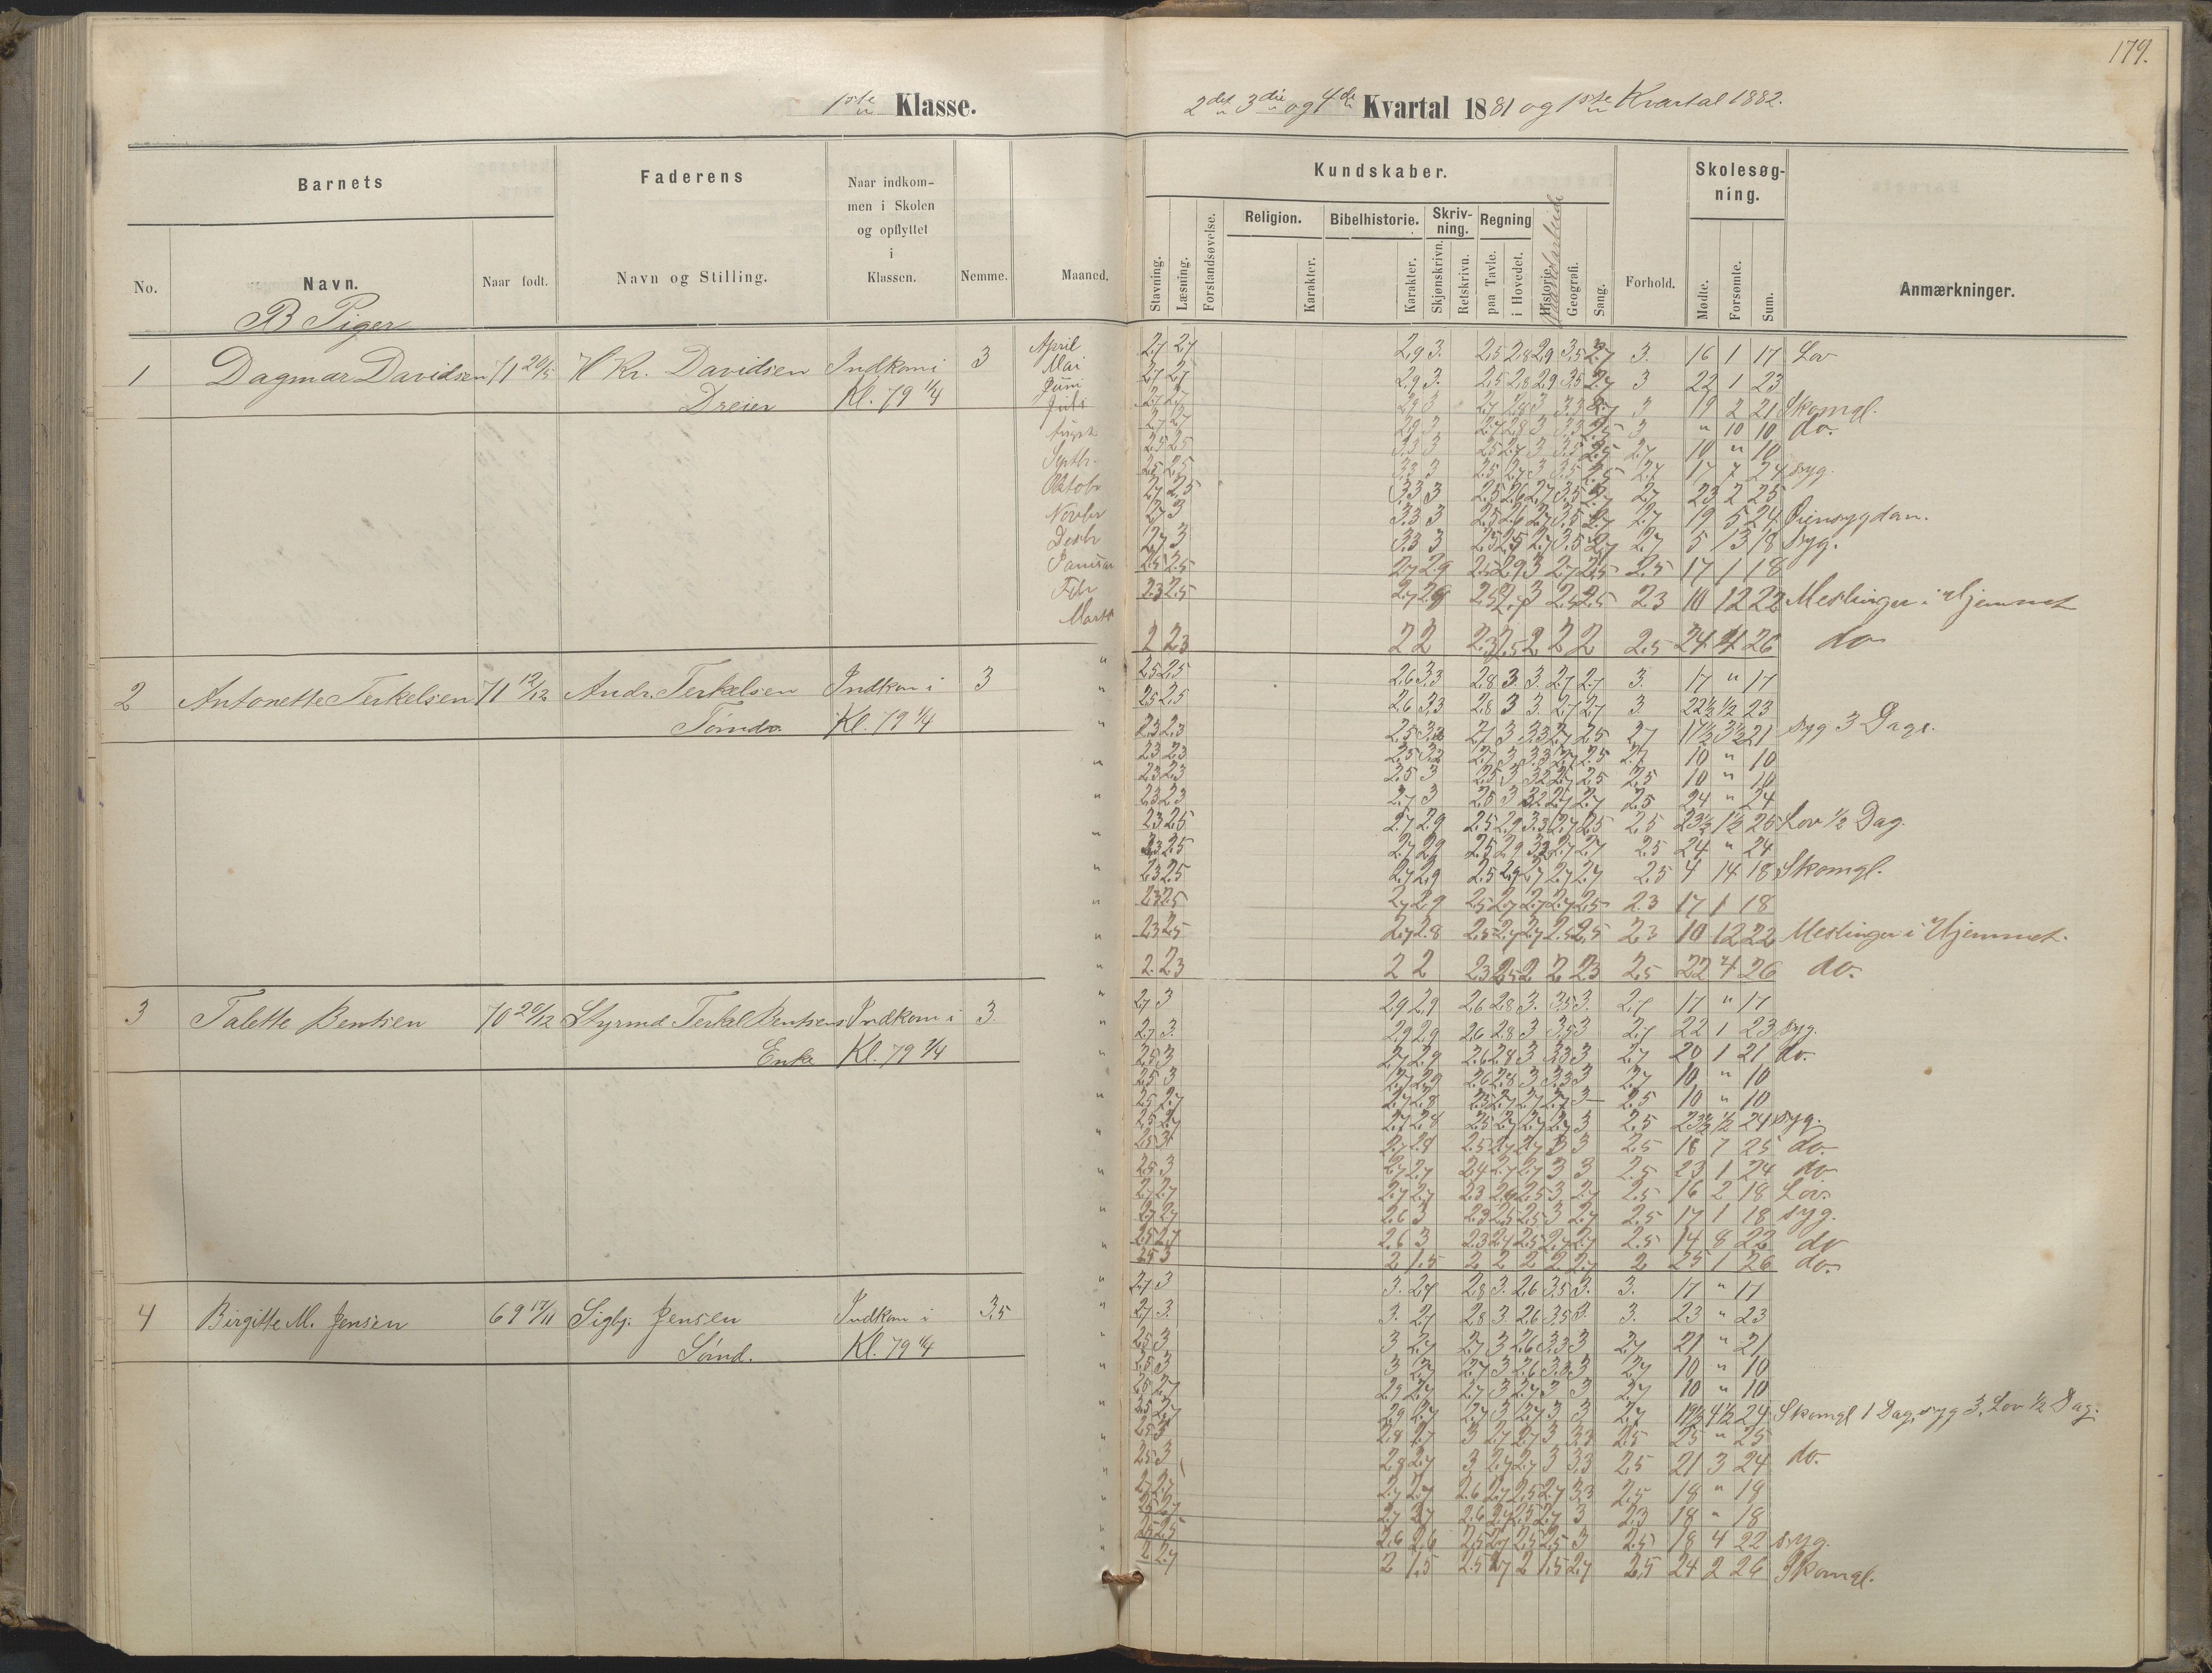 179.
1ste Klasse.
2det 3die og 4de Kvartal 1881 og 1ste Kvartal 1882.
Barnets
Faderens
Naar indkom-
men i Skolen
og opflyttet
i
Klassen.
Nemme.
Maaned.
No.
Navn.
Naar født.
Navn og Stilling.
Kundskaber.
Skolesøg-
ning.
Stavning.
Læsning.
Forstandsøvelse.
Religion.
Karakter.
Bibelhistorie.
Karakter.
Skriv-
ning.
Skjønskrivn.
Retskrivn.
Regning
paa Tavle.
i Hovedet.
Historie.
Geografi.
Sang.
Forhold.
Mødte.
Forsømte.
Sum.
Anmærkninger.
B Piger
1 Dagmar Davidsen 71 20/5 H Kr. Davidsen Indkom i 3
Dreier Kl. 79 1/4
April 2,7 2,7 2,9 3. 2,5 2,8 2,9 3,5 2,7 3. 16 1 17 Lov
Mai 2,7 2,7 2,9 3. 2,5 2,8 2,9 3,5 2,7 3 22 1 23
Juni 2,7 2,7 2,9 3 2,7 2,8 3 3,3 2,7 3 19 2 21 Skomgl.
Juli 2,7 2,7 2,9 3 2,7 2,8 3 3,3 2,5 3 " 10 10 do.
August 2,5 2,5 3,3 3 2,5 2,7 3 3,5 2,5 2,7 10 " 10
Septbr. 2,5 2,5 3,3 3 2,5 2,7 3 3,5 2,5 2,7 17 7 24 syg.
Oktobr 2,7 2,5 3,3 3 2,5 2,6 2,7 3,5 2,7 2,7 23 2 25
Novbr 2,7 3 3,3 3 2,5 2,6 2,7 3,5 2,7 2,7 19 5 24 Øiensygdom.
Desbr 2,7 3 3,3 3 2,5 2,5 2,7 3,5 2,7 2,7 5 13 18 syg.
Januar 2,5 2,5 2,7 2,9 2,5 2,9 3 2,7 2,5 2,5 17 1 18
Febr 2,3 2,5 2,7 2,9 2,5 2,7 3 2,5 2,5 2,3 10 12 22 Meslinger i Hjemmet
Marts 2 2,3 2 2 2,3 2,5 2 2 2 2,5 24 4 26 do
2 Antonette Terkelsen 71 12/12 Andr. Terkelsen Indkom i 3
Tømdr. Kl. 79 1/4
2,5 2,5 2,6 3,3 2,8 3. 3. 2,7 2,7 3. 17 " 17
2,5 2,5 2,6 3,3 2,8 3 3. 2,7 2,7 3. 22½ ½ 23
2,3 2,3 2,5 3,2 2,7 3 3,3 2,7 2,5 2,7 17½ 3½ 21 syg 3 Dage.
2,3 2,3 2,5 3,2 2,7 3 3,3 2,7 2,5 2,7 10 " 10
2,3 2,3 2,5 3 2,5 3 3,2 2,7 2,5 2,5 10 " 10
2,3 2,3 2,7 3 2,5 3 3,2 2,7 2,7 2,5 24 " 24
2,3 2,5 2,7 2,9 2,5 2,9 3,3 2,7 2,5 2,5 23½ 1½ 25 Lov ½ Dag.
2,3 2,5 2,7 2,9 2,5 2,9 3,2 2,7 2,7 2,5 24 " 24
2,3 2,5 2,7 2,9 2,5 2,9 2,7 2,7 2,7 2,5 4 14 18 Skomgl.
2,3 2,5 2,7 2,9 2,5 2,7 2,7 2,7 2,5 2,3 17 1 18
2,3 2,5 2,7 2,8 2,5 2,7 2,7 2,5 2,5 2,3 10 12 22 Meslinger i Hjemmet.
2. 2,3 2 2 2,3 2,5 2 2 2,3 2,5 22 4 26 do.
3 Talette Bentsen 70 20/12 Styrmd Terkel Bentsens Indkom i 3.
Enke Kl. 79 1/4
2,7 3 2,9 2,9 2,6 2,8 3. 3,5 3. 2,7 17 " 17
2,7 3. 2,9 2,9 2,6 2,8 3 3,5 3 2,7 22 1 23 syg.
2,5 3 2,7 2,9 2,6 2,8 3 3,3 3 2,7 20 1 21 do.
2,5 3 2,7 2,9 2,6 2,8 3 3,3 3 2,7 10 " 10
2,5 2,7 2,7 2,8 2,5 2,7 2,7 2,7 3 2,5 10 " 10
2,5 2,7 2,7 2,8 2,5 2,7 2,7 2,7 3 2,5 23½ ½ 24 syg.
2,5 3 2,7 2,8 2,5 2,7 2,7 3 3 2,5 18 7 25 do.
2,5 3 2,7 2,7 2,4 2,7 2,7 3 3 2,5 23 1 24 do
2,7 2,7 2,7 2,7 2,3 2,4 2,5 3 2,7 2,5 16 2 18 Lov.
2,7 2,7 2,6 3 2,3 2,5 2,5 3 2,7 2,5 17 1 18 syg.
2,5 2,7 2,6 3 2,3 2,7 2,5 2,7 2,7 2,5 14 8 22 do
2,5 3 2 1,5 2 2 2 2 2,7 2 25 1 26 do.
4 Birgitte M. Jensen 69 17/11 Sigbj. Jensen Indkom i 3,5
Sømd. Kl. 79 1/4
2,7 3 3. 2,7 2,8 3. 2,6 3,5 3. 3. 17 " 17
2,7 3. 3. 2,7 2,8 3. 2,6 3,5 3. 3. 23 " 23
2,5 3 3 2,7 2,7 3 2,6 3,3 3 2,7 21 " 21
2,5 3 3 2,7 2,7 3 2,6 3,3 3 2,7 10 " 10
2,5 2,7 2,9 2,7 2,7 3 2,7 3 3 2,7 10 " 10
2,5 2,7 2,9 2,7 2,7 3 2,7 3 3 2,7 19½ 4½ 24 Skomgl 1 Dag, syg 3, Lov ½ Dag.
2,5 3 2,8 2,7 3 2,7 2,7 3 3,3 2,5 25 " 25
2,5 3 2,8 2,7 3 2,7 2,7 3 3,3 2,5 21 3 24 do.
2,7 2,7 2,7 2,7 2,6 2,7 2,5 2,7 3,3 2,5 18 " 18
2,5 2,7 2,7 2,7 2,6 2,7 2,5 2,7 3 2,3 18 " 18
2,5 2,5 2,6 2,6 2,5 2,7 2,5 2,5 3 2,5 18 4 22 syg.
2 2,7 2 1,5 2,5 2,7 2 1,5 2,7 2,5 24 2 26 Skomgl.